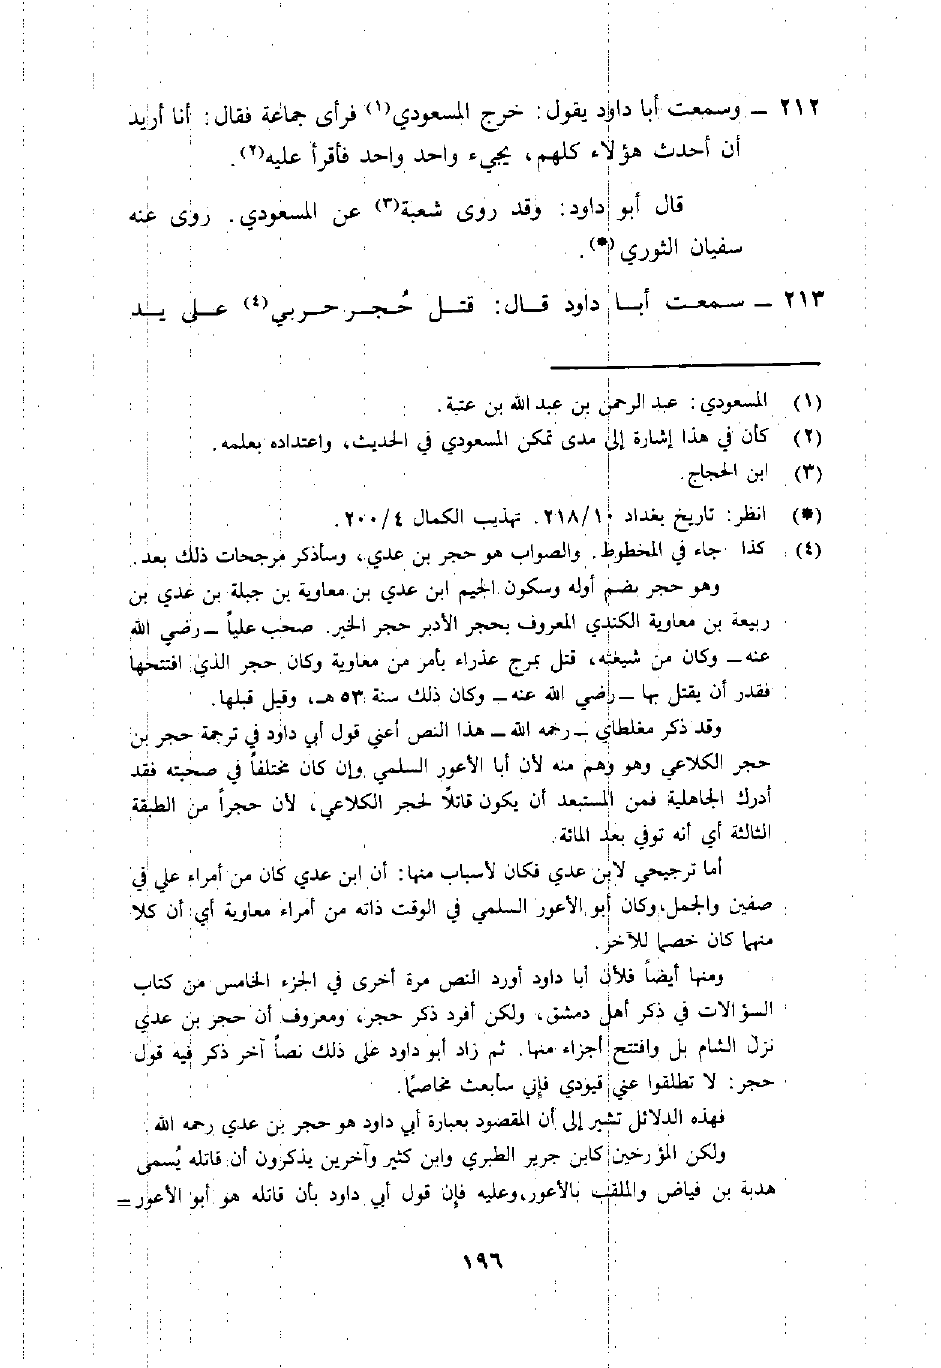 ٢١٢ ــ وسمعت أبا داود يقول: خرج المسعودي(١) فرأى جماعة فقال: أنا أريد
أن أحدث هؤلاء كلهم، يجيء واحد واحد فأقرأ عليه(٢).
قال أبو داود: وقد روى شعبة(٣) عن المسعودي. روى عنه
سفيان الثوري(*).
٢١٣ ــ سمعت أبا داود قال: قتل حُجر حربي(٤) على يد
(١) المسعودي: عبد الرحمن بن عبد الله بن عتبة.
(٢) كأن في هذا إشارة إلى مدى تمكن المسعودي في الحديث، واعتداده بعلمه.
(٣) ابن الحجاج.
(*) انظر: تاريخ بغداد ٢١٨/١٠. تهذيب الكمال ٢٠٠/٤.
(٤) كذا جاء في المخطوط. والصواب هو حجر بن عدي، وسأذكر مرجحات ذلك بعد.
وهو حجر بضم أوله وسكون الجيم ابن عدي بن معاوية بن جبلة بن عدي بن
ربيعة بن معاوية الكندي المعروف بحجر الأدبر حجر الخير. صحب علياً ــ رضي الله
عنه ــ وكان من شيعته، قتل بمرج عذراء بأمر من معاوية وكان حجر الذي افتتحها
فقدر أن يقتل بها ــ رضي الله عنه ــ وكان ذلك سنة ٥٣ هـ، وقيل قبلها.
وقد ذكر مغلطاي ــ رحمه الله ــ هذا النص أعني قول أبي داود في ترجمة حجر بن
حجر الكلاعي وهو وهم منه لأن أبا الأعور السلمي وإن كان مختلفاً في صحبته فقد
أدرك الجاهلية فمن المستبعد أن يكون قاتلًا لحجر الكلاعي، لأن حجراً من الطبقة
الثالثة أي أنه توفي بعد المائة.
أما ترجيحي لابن عدي فكان لأسباب منها: أن ابن عدي كان من أمراء علي في
صفين والجمل، وكان أبو الأعور السلمي في الوقت ذاته من أمراء معاوية أي: أن كلا
منهما كان خصما للآخر.
ومنها أيضاً فلأن أبا داود أورد النص مرة أخرى في الجزء الخامس من كتاب
السؤالات في ذكر أهل دمشق، ولكن أفرد ذكر حجر، ومعروف أن حجر بن عدي
نزل الشام بل وافتتح أجزاء منها. ثم زاد أبو داود على ذلك نصاً آخر ذكر فيه قول
حجر: لا تطلقوا عني قيودي فإني سأبعث مخاصمًا.
فهذه الدلائل تشير إلى أن المقصود بعبارة أبي داود هو حجر بن عدي رحمه الله.
ولكن المؤرخين كابن جرير الطبري وابن كثير وآخرين يذكرون أن قاتله يُسمى
هدبة بن فياض والملقب بالأعور، وعليه فإن قول أبي داود بأن قاتله هو أبو الأعور =
١٩٦